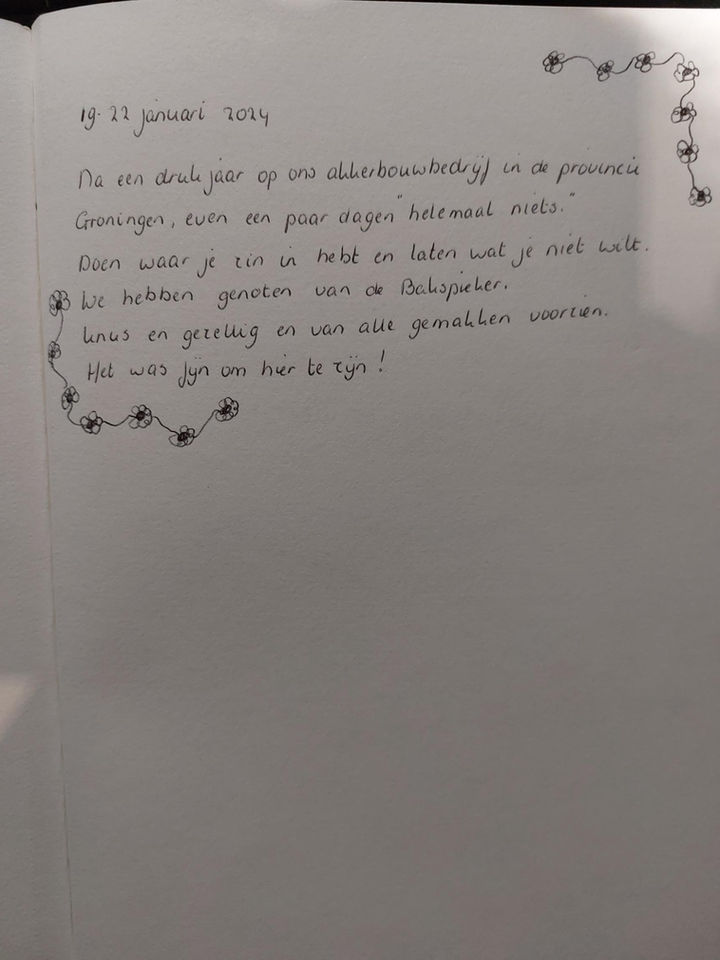 19-22 januari 2024
Na een druk jaar op ons akkerbouwbedrijf in de provincie
Groningen, even een paar dagen "helemaal niets."
Doen waar je zin in hebt en laten wat je niet wilt.
We hebben genoten van de Bakspieker.
Knus en gezellig en van alle gemakken voorzien.
Het was fijn om hier te zijn!